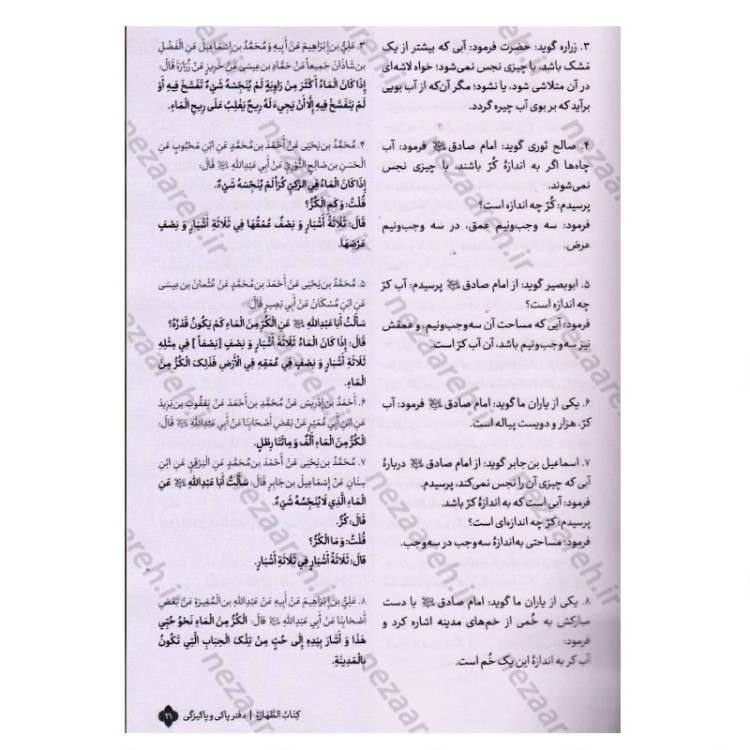 ۳. زراره گوید: حضرت فرمود: آبی که بیشتر از یک
مَشک باشد، با چیزی نجس نمی‌شود؛ خواه لاشه‌ای
در آن متلاشی شود، یا نشود؛ مگر آن‌که از آب بویی
برآید که بر بوی آب چیره گردد.
۴. صالح ثوری گوید: امام صادق ﷺ فرمود: آب
چاه‌ها اگر به اندازهٔ کُرّ باشند، با چیزی نجس
نمی‌شوند.
پرسیدم: کُرّ چه اندازه است؟
فرمود: سه وجب‌ونیم عمق، در سه وجب‌ونیم
عرض.
۵. ابوبصیر گوید: از امام صادق پرسیدم: آب کرّ
چه اندازه است؟
فرمود: آبی که مساحت آن سه‌وجب‌ونیم، و عمقش
نیز سه‌وجب‌ونیم باشد، آن آب کرّ است.
۶. یکی از یاران ما گوید: امام صادق فرمود: آب
کرّ، هزار و دویست پیاله است.
۷. اسماعیل بن‌جابر گوید: از امام صادق دربارهٔ
آبی که چیزی آن را نجس نمی‌کند، پرسیدم.
فرمود: آبی است که به اندازهٔ کرّ باشد.
پرسیدم: کرّ چه اندازه‌ای است؟
فرمود: مساحتی به‌اندازهٔ سه‌وجب در سه‌وجب.
۸. یکی از یاران ما گوید: امام صادق با دست
مبارکش به خُمی از خم‌های مدینه اشاره کرد و
فرمود:
آب کر به اندازهٔ این یک خُم است.
۳. عَلِيُّ بن‌إِبْرَاهِيمَ عَنْ أَبِيهِ وَ مُحَمَّدُ بن‌إِسْمَاعِيلَ عَنِ الْفَضْلِ
بن‌شَاذَانَ جَمِيعاً عَنْ حَمَّادِ بن‌عِيسَى عَنْ حَرِيزٍ عَنْ زُرَارَةَ قَالَ:
إِذَا كَانَ الْمَاءُ أَكْثَرَ مِنْ رَاوِيَةٍ لَمْ يُنَجِّسْهُ شَيْءٌ تَفَسَّخَ فِيهِ أَوْ
لَمْ يَتَفَسَّخْ فِيهِ إِلَّا أَنْ يَجِيءَ لَهُ رِيحٌ يَغْلِبُ عَلَى رِيحِ الْمَاءِ.
۴. مُحَمَّدُ بن‌يَحْيَى عَنْ أَحْمَدَ بن‌مُحَمَّدٍ عَنِ ابْنِ مَحْبُوبٍ عَنِ
الْحَسَنِ بن‌صَالِحٍ الثَّوْرِيِّ عَنْ أَبِي عَبْدِاللهِ قَالَ:
إِذَا كَانَ الْمَاءُ فِي الرَّكِيِّ كُرّاً لَمْ يُنَجِّسْهُ شَيْءٌ.
قُلْتُ: وَ كَمِ الْكُرُّ؟
قَالَ: ثَلَاثَةُ أَشْبَارٍ وَ نِصْفٌ عُمْقُهَا فِي ثَلَاثَةِ أَشْبَارٍ وَ نِصْفٍ
عَرْضِهَا.
۵. مُحَمَّدُ بن‌يَحْيَى عَنْ أَحْمَدَ بن‌مُحَمَّدٍ عَنْ عُثْمَانَ بن‌عِيسَى
عَنِ ابْنِ مُسْكَانَ عَنْ أَبِي بَصِيرٍ قَالَ:
سَأَلْتُ أَبَا عَبْدِاللهِ عَنِ الْكُرِّ مِنَ الْمَاءِ كَمْ يَكُونُ قَدْرُهُ؟
قَالَ: إِذَا كَانَ الْمَاءُ ثَلَاثَةَ أَشْبَارٍ وَ نِصْفٍ [نِصْفاً] فِي مِثْلِهِ
ثَلَاثَةِ أَشْبَارٍ وَ نِصْفٍ فِي عُمْقِهِ فِي الْأَرْضِ فَذَلِكَ الْكُرُّ مِنَ
الْمَاءِ.
۶. أَحْمَدُ بن‌إِدْرِيسَ عَنْ مُحَمَّدِ بن‌أَحْمَدَ عَنْ يَعْقُوبَ بن‌يَزِيدَ
عَنِ ابْنِ أَبِي عُمَيْرٍ عَنْ بَعْضِ أَصْحَابِنَا عَنْ أَبِي عَبْدِاللهِ قَالَ:
الْكُرُّ مِنَ الْمَاءِ أَلْفٌ وَ مِائَتَا رِطْلٍ.
۷. مُحَمَّدُ بن‌يَحْيَى عَنْ أَحْمَدَ بن‌مُحَمَّدٍ عَنِ الْبَرْقِيِّ عَنِ ابْنِ
سِنَانٍ عَنْ إِسْمَاعِيلَ بن‌جَابِرٍ قَالَ: سَأَلْتُ أَبَا عَبْدِاللهِ عَنِ
الْمَاءِ الَّذِي لَا يُنَجِّسُهُ شَيْءٌ.
قَالَ: كُرٌّ.
قُلْتُ: وَ مَا الْكُرُّ؟
قَالَ: ثَلَاثَةُ أَشْبَارٍ فِي ثَلَاثَةِ أَشْبَارٍ.
۸. عَلِيُّ بن‌إِبْرَاهِيمَ عَنْ أَبِيهِ عَنْ عَبْدِاللهِ بن‌الْمُغِيرَةِ عَنْ بَعْضِ
أَصْحَابِنَا عَنْ أَبِي عَبْدِاللهِ قَالَ: الْكُرُّ مِنَ الْمَاءِ نَحْوُ حُبِّي
هَذَا وَ أَشَارَ بِيَدِهِ إِلَى حُبٍّ مِنْ تِلْكَ الْحِبَابِ الَّتِي تَكُونُ
بِالْمَدِينَةِ.
كِتَابُ الطَّهَارَة | دفتر پاکی و پاکیزگی ۲۱
nezaareh.ir